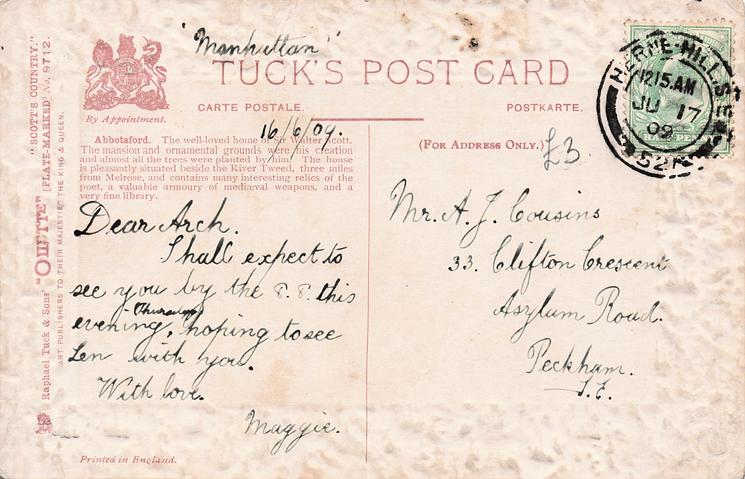 "Manhattan"
TUCK'S POST CARD
By Appointment.
CARTE POSTALE.
POSTKARTE.
16/6/09.
(FOR ADDRESS ONLY.)
£3.
Abbotsford. The well-loved home of Sir Walter Scott.
The mansion and ornamental grounds were his creation
and almost all the trees were planted by him. The house
is pleasantly situated beside the River Tweed, three miles
from Melrose, and contains many interesting relics of the
poet, a valuable armoury of mediæval weapons, and a
very fine library.
Dear Arch.
I shall expect to
see you by the 8.8. this
evening, Thursday, hoping to see
Len with you.
With love.
Maggie.
Mr. A. J. Cousins
33. Clifton Crescent
Asylum Road.
Peckham.
S.E.
HERNE-HILL S.E
12.15.AM
JU 17
09
52
HALF PENNY
Raphael Tuck & Sons' "OILETTE" [PLATE-MARKED] No. 9712.
"SCOTT'S COUNTRY."
ART PUBLISHERS TO THEIR MAJESTIES THE KING & QUEEN.
Printed in England.